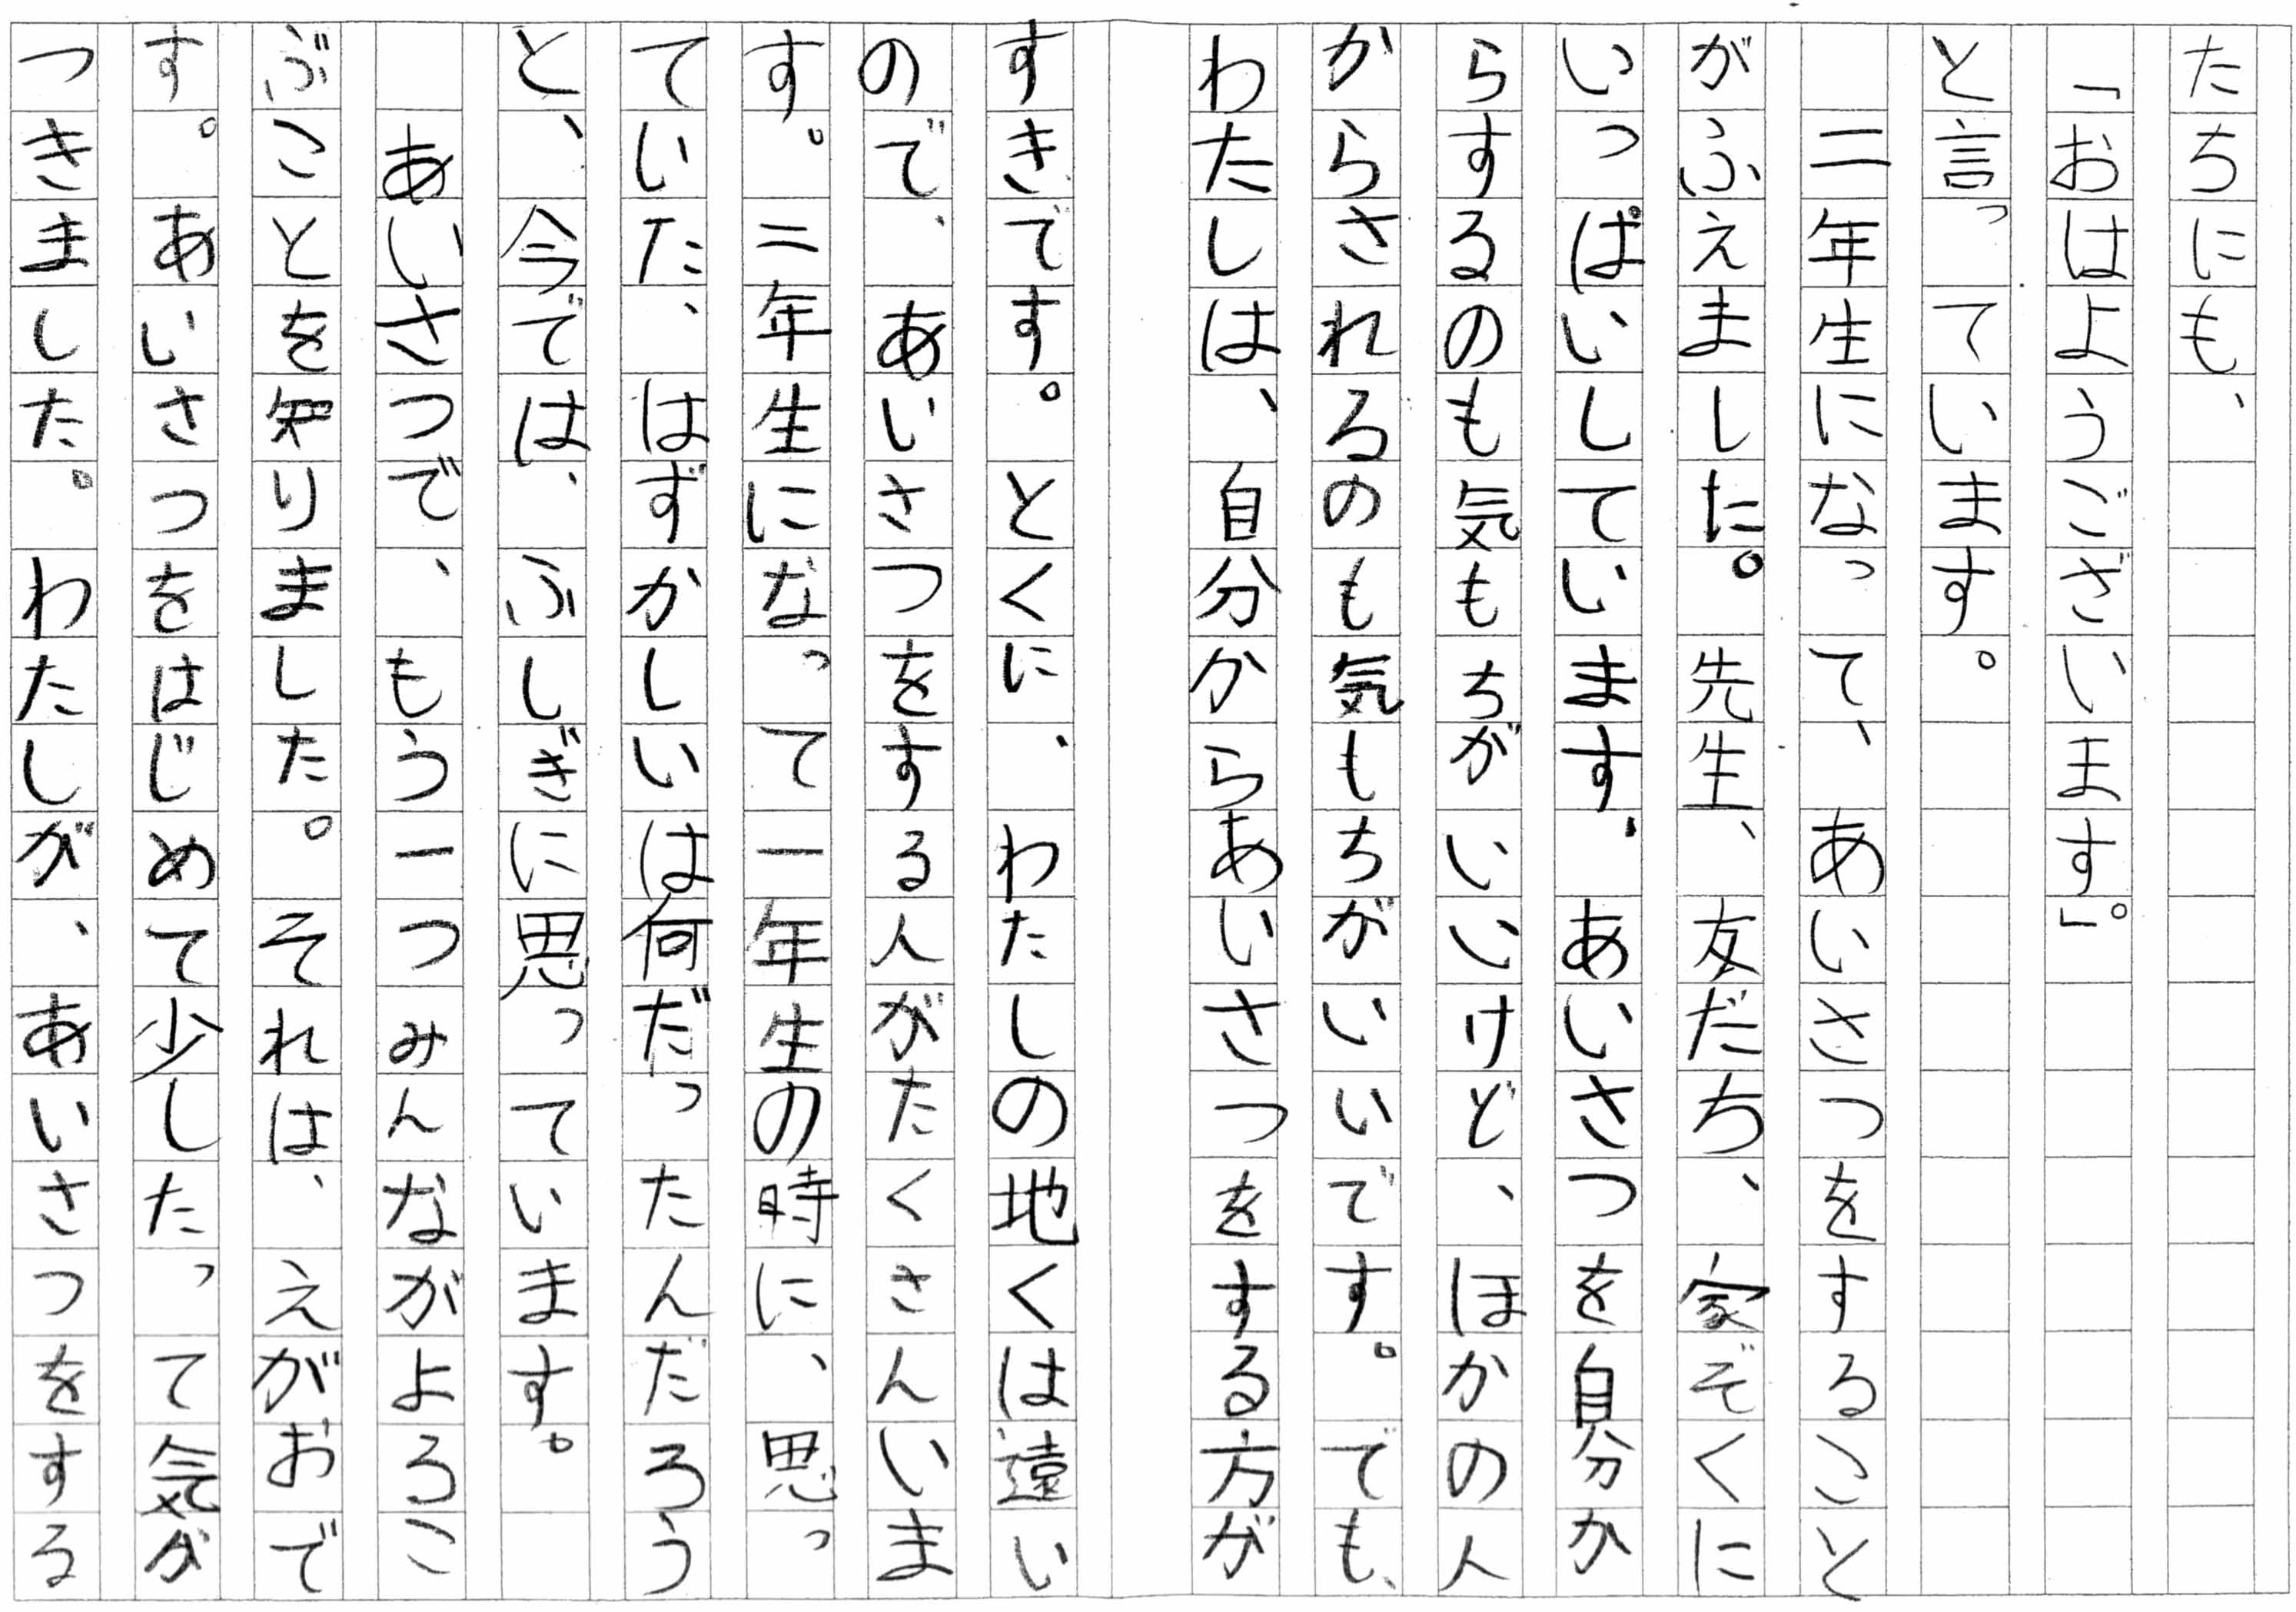 たちにも、
「おはようございます」。
と言っています。
二年生になって、あいさつをすること
がふえました。先生、友だち、家ぞくに
いっぱいしています。あいさつを自分か
らするのも気もちがいいけど、ほかの人
からされるのも気もちがいいです。でも、
わたしは、自分からあいさつをする方が
すきです。とくに、わたしの地くは遠い
ので、あいさつをする人がたくさんいま
す。二年生になって一年生の時に、思っ
ていた、はずかしいは何だったんだろう
と、今では、ふしぎに思っています。
あいさつで、もう一つみんながよろこ
ぶことを知りました。それは、えがおで
す。あいさつをはじめて少したって気が
つきました。わたしが、あいさつをする